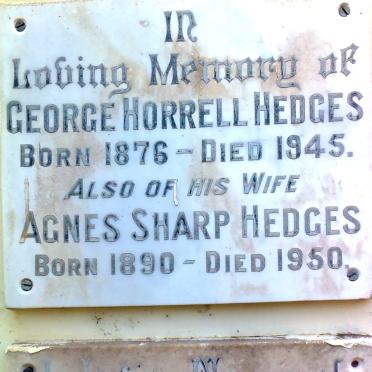 IN
Loving Memory of
GEORGE HORRELL HEDGES
BORN 1876 - DIED 1945.
ALSO OF HIS WIFE
AGNES SHARP HEDGES
BORN 1890 - DIED 1950.